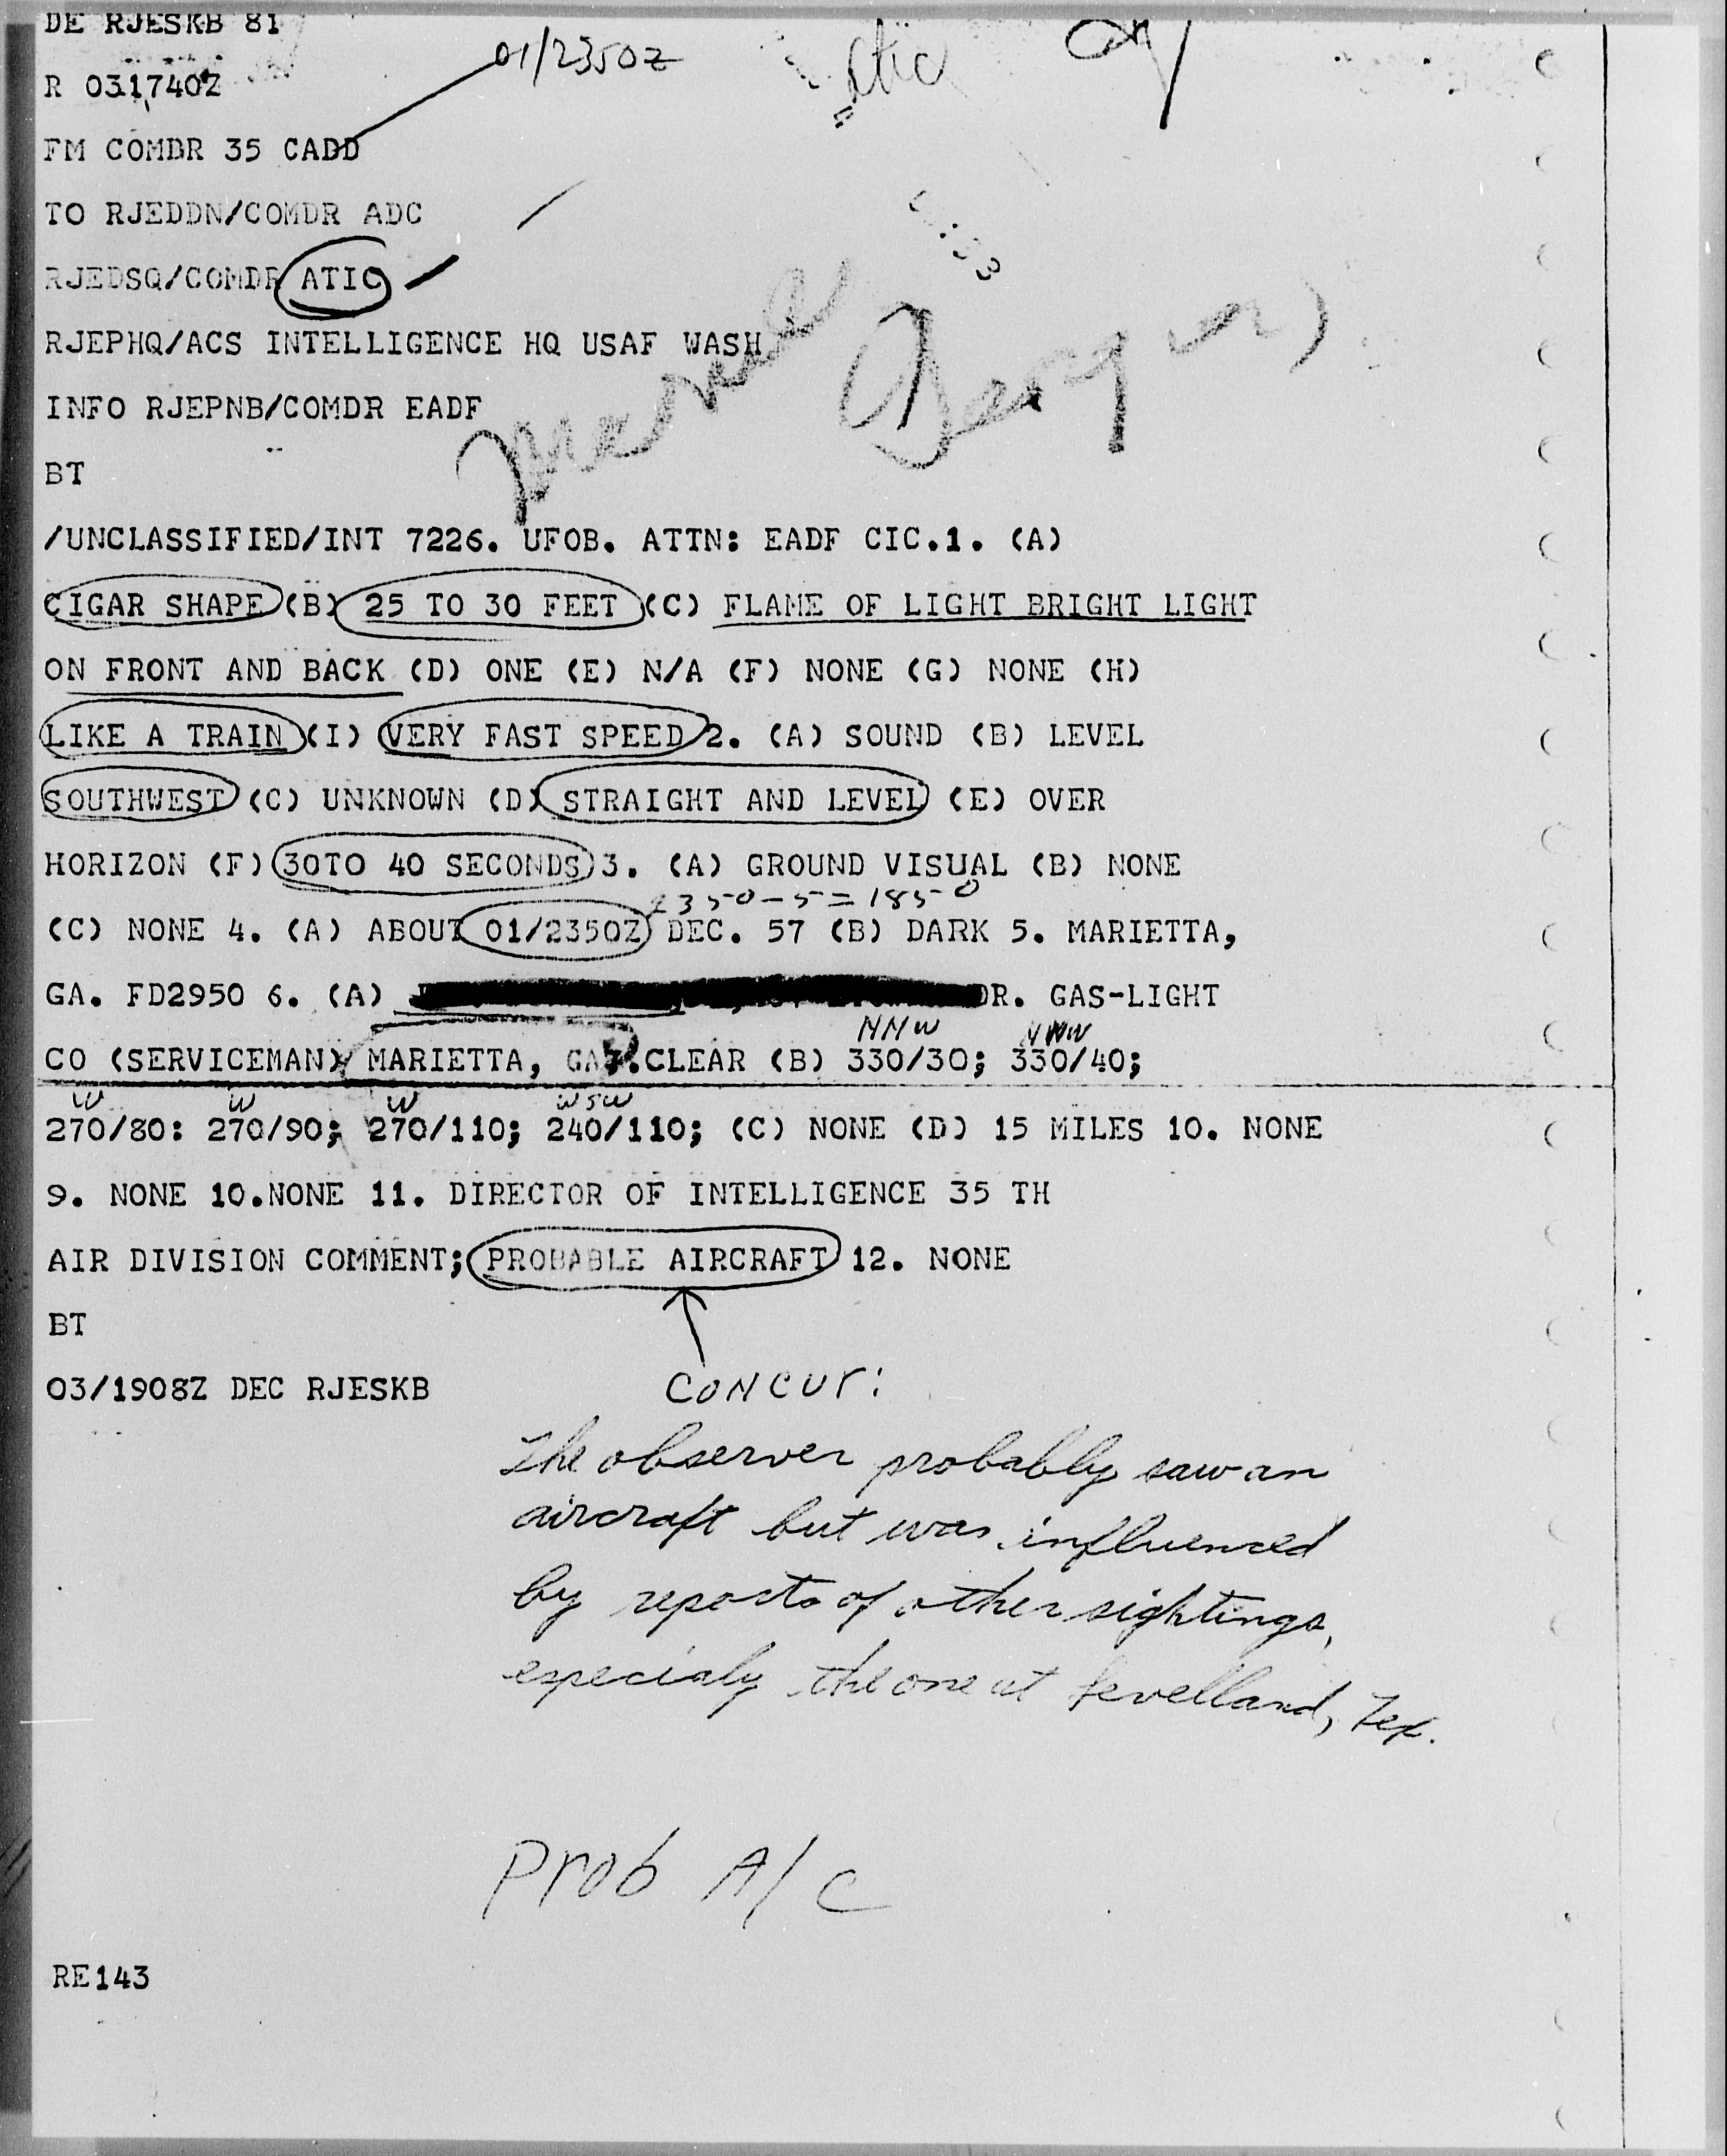 DE RJESKB 81
01/2350Z
R 031740Z
FM COMDR 35 CADD
TO RJEDDN/COMDR ADC
RJEDSQ/COMDR ATIC
RJEPHQ/ACS INTELLIGENCE HQ USAF WASH
INFO RJEPNB/COMDR EADF
BT
/UNCLASSIFIED/INT 7226. UFOB. ATTN: EADF CIC.1. (A)
CIGAR SHAPE (B) 25 TO 30 FEET (C) FLAME OF LIGHT BRIGHT LIGHT
ON FRONT AND BACK (D) ONE (E) N/A (F) NONE (G) NONE (H)
LIKE A TRAIN (I) VERY FAST SPEED 2. (A) SOUND (B) LEVEL
SOUTHWEST (C) UNKNOWN (D) STRAIGHT AND LEVEL (E) OVER
HORIZON (F) 30TO 40 SECONDS 3. (A) GROUND VISUAL (B) NONE
2350-5=1850
(C) NONE 4. (A) ABOUT 01/2350Z DEC. 57 (B) DARK 5. MARIETTA,
GA. FD2950 6. (A) DR. GAS-LIGHT
NNW NNW
CO (SERVICEMAN) MARIETTA, GA 7.CLEAR (B) 330/30; 330/40;
W W W WSW
270/80: 270/90; 270/110; 240/110; (C) NONE (D) 15 MILES 10. NONE
9. NONE 10.NONE 11. DIRECTOR OF INTELLIGENCE 35 TH
AIR DIVISION COMMENT; PROBABLE AIRCRAFT 12. NONE
BT
03/1908Z DEC RJESKB
CONCUR:
The observer probably saw an
aircraft but was influenced
by reports of other sightings,
especialy the one at Levelland, Tex.
Prob A/C
RE143